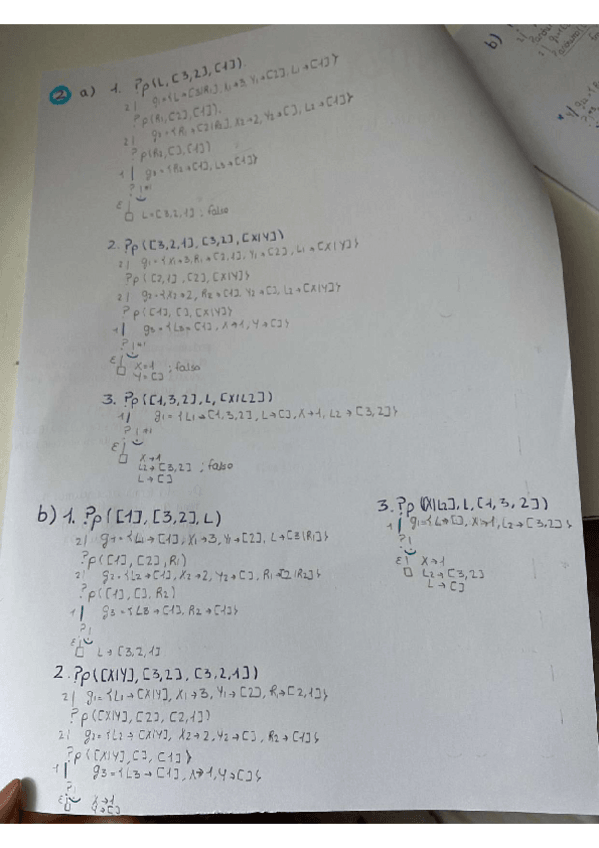 2 a) 1. ?p(L, [3,2], [1]).
2| g1={L→[3|R1], X1→3, Y1→[2], L1→[1]}
?p(R1, [2], [1]).
2| g2={R1→[2|R2], X2→2, Y2→[], L2→[1]}
?p(R2, [], [1])
1| g3={R2→[1], L3→[1]}
? !
ε|
□ L=[3,2,1] ; falso
2. ?p([3,2,1], [3,2], [X|Y])
2| g1={X1→3, R1→[2,1], Y1→[2], L1→[X|Y]}
?p([2,1], [2], [X|Y])
2| g2={X2→2, R2→[1], Y2→[], L2→[X|Y]}
?p([1], [], [X|Y])
1| g3={L3→[1], X→1, Y→[]}
? !
ε|
□ X→1 ; falso
Y=[]
3. ?p([1,3,2], L, [X|L2])
1| g1={L1→[1,3,2], L→[], X→1, L2→[3,2]}
? !
ε|
□ X→1
L2→[3,2] ; falso
L→[]
b) 1. ?p([1], [3,2], L)
2| g1={L1→[1], X1→3, Y1→[2], L→[3|R1]}
?p([1], [2], R1)
2| g2={L2→[1], X2→2, Y2→[], R1→[2|R2]}
?p([1], [], R2)
1| g3={L3→[1], R2→[1]}
? !
ε|
□ L→[3,2,1]
2. ?p([X|Y], [3,2], [3,2,1])
2| g1={L1→[X|Y], X1→3, Y1→[2], R1→[2,1]}
?p([X|Y], [2], [2,1])
2| g2={L2→[X|Y], X2→2, Y2→[], R2→[1]}
?p([X|Y], [], [1])
1| g3={L3→[1], X→1, Y→[]}
? !
ε| X→1
□ Y→[]
3. ?p([X|L2], L, [1,3,2])
1| g1={L→[], X→1, L2→[3,2]}
? !
ε| X→1
□ L2→[3,2]
L→[]
b)